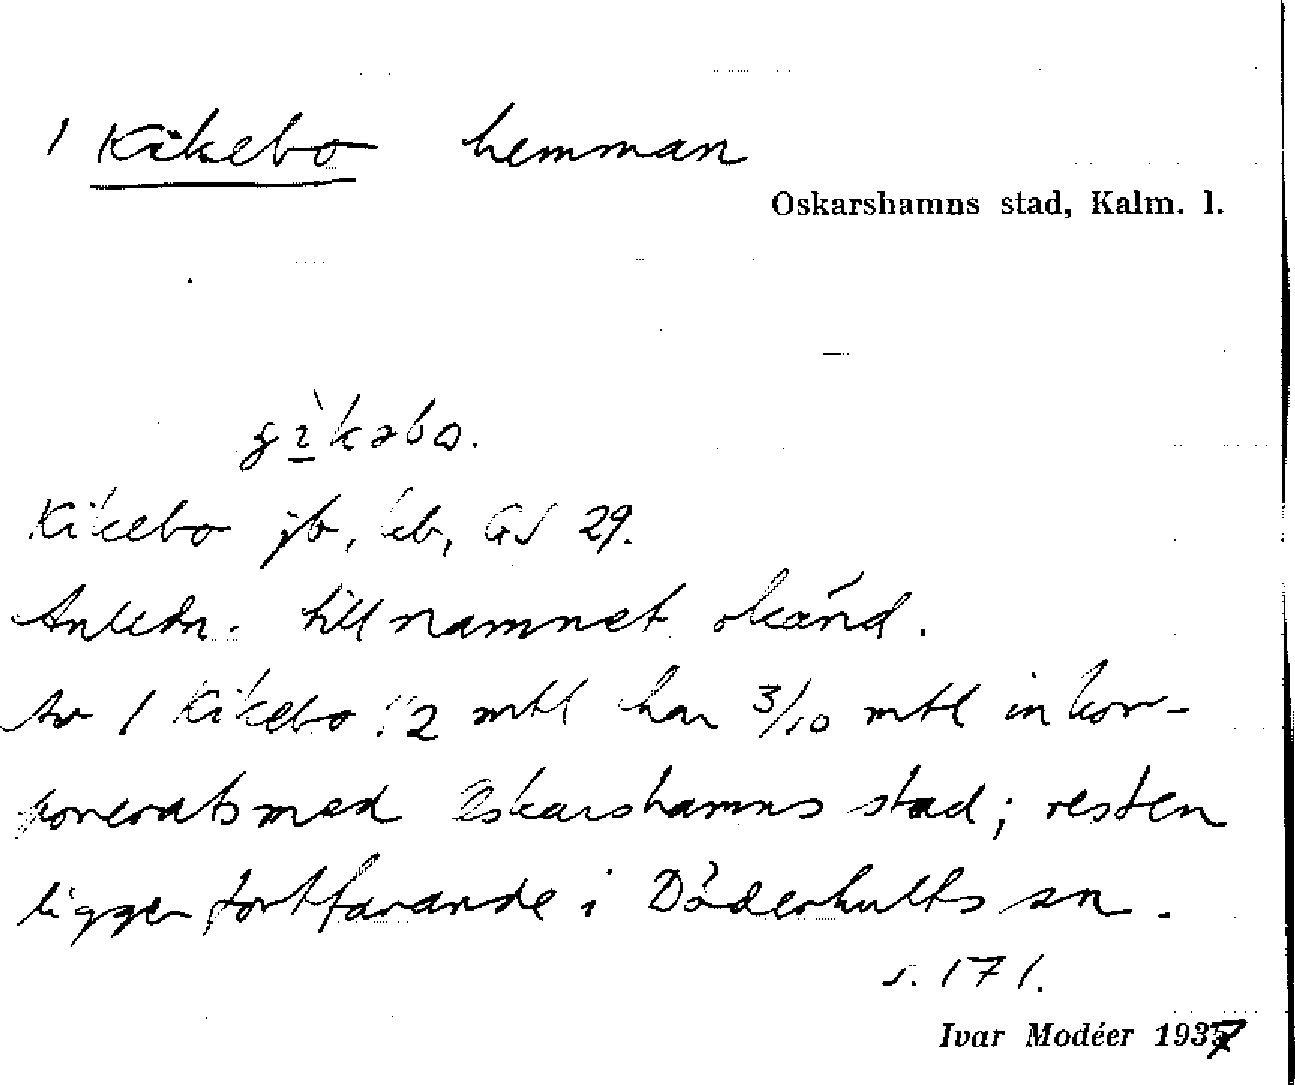 1 Kikebo hemman
Oskarshamns stad, Kalm. l.
Kikebo jb, eb, GS 29.
Anledn. till namnet okänd.
Av 1 Kikebo 1/2 mtl har 3/10 mtl inkor-
porerats med Oskarshamns stad; resten
ligger fortfarande i Döderhults sn.
s. 171.
Ivar Modéer 1937